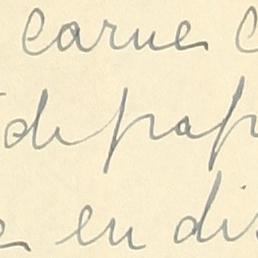 carne c
de pap
e en dis